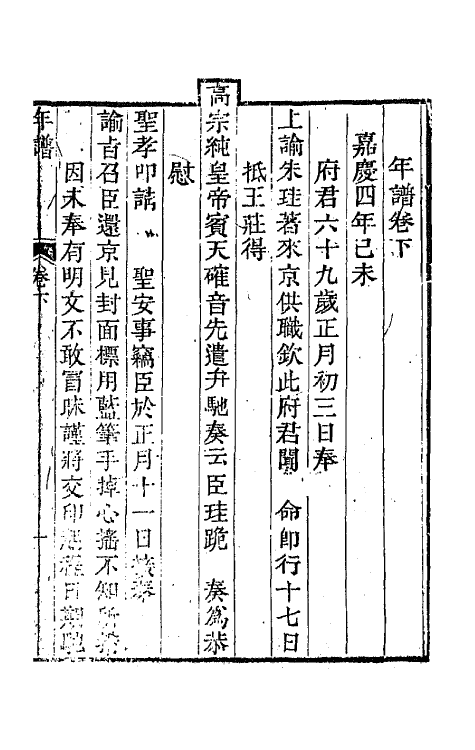 年譜卷下
嘉慶四年己未
府君六十九歲正月初三日奉
上諭朱珪著來京供職欽此府君聞 命即行十七日
抵王莊得
高宗純皇帝賓天確音先遣弁馳奏云臣珪跪 奏為恭
慰
聖孝叩請 聖安事竊臣於正月十一日接奉
諭旨召臣還京見封面標用藍筆手掉心搖不知所
因未奉有明文不敢冒昧謹將交印起程日期馳
年譜 卷下